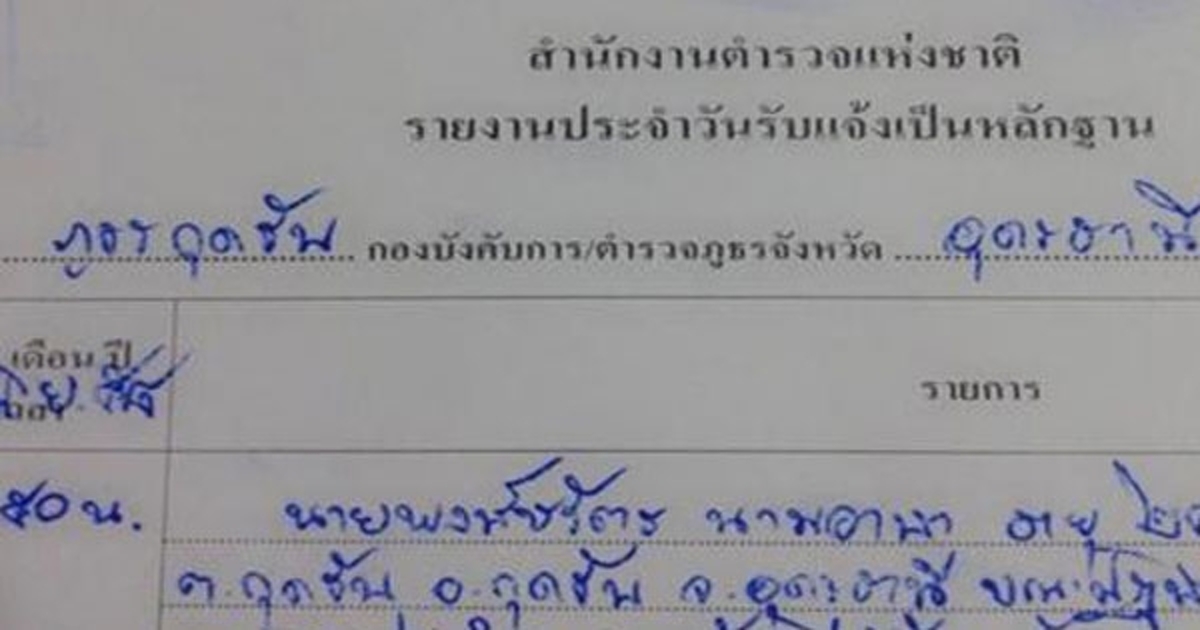 สำนักงานตำรวจแห่งชาติ
รายงานประจำวันรับแจ้งเป็นหลักฐาน
ภูธร กุดจับ กองบังคับการ/ตำรวจภูธรจังหวัด อุดรธานี
เดือน ปี
รายการ
๕๐ น. นาย นามอาษา อายุ
ต.กุดจับ อ.กุดจับ จ.อุดรธานี